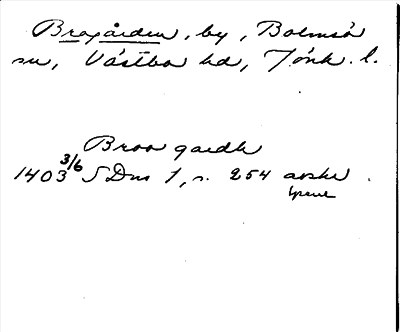 Bragården, by, Bolmsö
sn, Västbo hd, Jönk. l.
Broo gardh
1403 3/6 SDns 1, s. 254 avskr